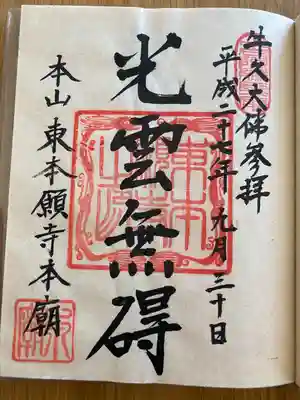 牛久大佛参拝
平成二十七年九月三十日
光雲無碍
本山東本願寺本廟